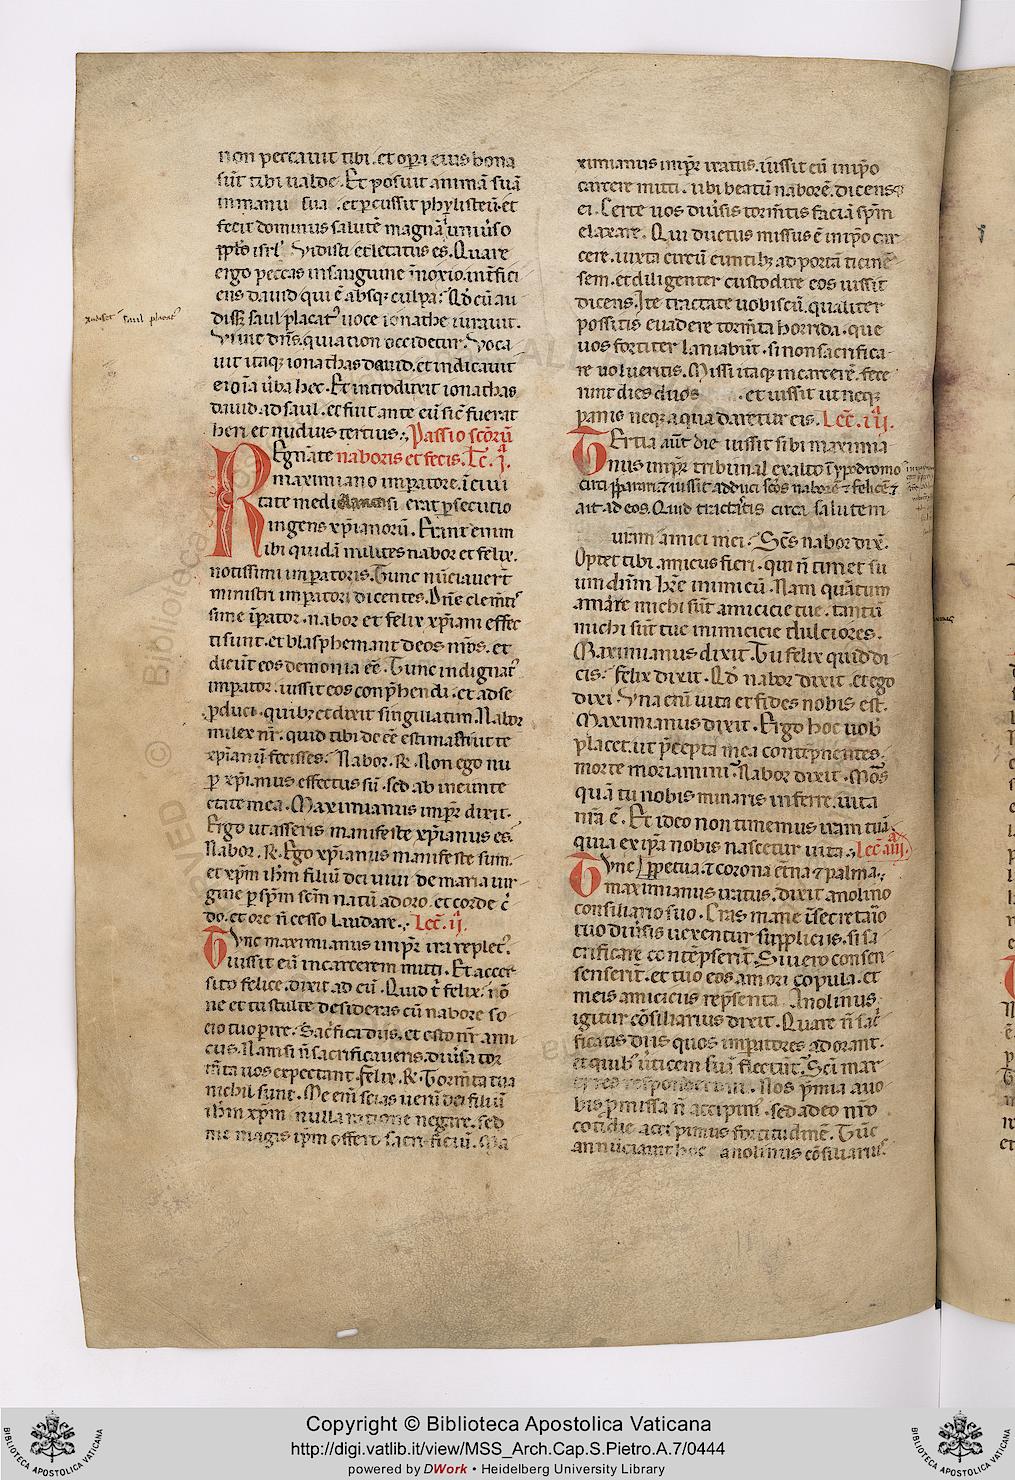 non peccauit tibi. et opera eius bona
sūt tibi ualde. Et posuit animā suā
in manu sua. et pcussit phylisteū. et
fecit dominus salutē magnā uniuso
pplo isrl'. Vidisti et letatus es. Quare
ergo peccas in sanguine īnoxio. intfici
ens dauid qui ē absq; culpa? Qd cū au
disset saul placat' uoce ionathe iurauit.
Viuit dns. quia non occidetur. Voca
uit itaq; ionathas dauid. et indicauit
ei oīa uba hec. Et introduxit ionathas
dauid ad saul. et fuit ante eū sic fuerat
heri et nudius tertius. Passio scōrū
REgnāte naboris et felicis. Lc. i.
maximiano impatore. in ciui
tate mediolanensi erat psecutio
ingens xp̄ianorū. Erant enim
ibi quidā milites nabor et felix.
notissimi impatoris. Tunc nūciauert
ministri impatori dicentes. Dn̄e clemti
sime ipator. nabor et felix xp̄iani effec
ti sunt. et blasphemant deos nr̄os. et
dicūt eos demonia ēē. Tunc indignat'
impator. iussit eos conp̄hendi. et ad se
pduci. quib; et dixit singillatim. Nabor
milex nr̄. quid tibi de ēē estimasti ut te
xp̄ianū fecisses? Nabor. R. Non ego nu
p xp̄ianus effectus sū. sed ab ineunte
etate mea. Maximianus impr̄ dixit.
Ergo ut asseris manifeste xp̄ianus es.
Nabor. R. Ego xp̄ianus manifeste sum.
et xp̄m ih̄m filiū dei uiui de maria uir
gine p sp̄m scm̄ natū adoro. et corde c̄
do. et ore n̄ cesso laudare. Lec̄. ii.
TVnc maximianus impr̄ ira replet'.
iussit eū in carcerem mitti. Et acce
sito felice. dixit ad eū. Quid t̄ felix. nō
ne et tu stulte desideras cū nabore so
cio tuo pire? Sacfica diis. et esto nr̄ ami
cus. Nam si n̄ sacrificaueris. diuisa tor
mta uos expectant. Felix. R. Tormta tua
nichil sunt. Me enī scias ueri dei filiū
ih̄m xp̄m nulla ratione negare. sed
me magis ip̄m offero sacrificiū. Ma
ximianus impr̄ iratus. iussit eū in ipo
carcere mitti. ubi beatū naborē. dicens
ei. Certe uos diuisis tormtis faciā sp̄m
elaxare. Qui ductus missus ē in ipo car
cere. iuxta circū euntib; ad portā ticinē
sem. et diligenter custodire eos iussit
dicens. Ite tractate uobiscū. qualiter
possitis euadere tormta horrida. que
uos fortiter laniabūt. si non sacrifica
re uolueritis. Missi itaq; in carcerē. fece
runt dies duos et iussit ut neq;
panis neq; aqua daretur eis. Lec̄. iii.
TErtia aūt die iussit sibi maximia
nus impr̄ tribunal exalto in ypodromo
circi pparari. et iussit adduci scōs naborē et felicē. et
ait ad eos. Quid tractatis circa salutem
uram amici mei? Scs nabor dix̄.
Optet tibi amicus fieri. qui n̄ timet su
um dn̄m hr̄e inimicū. Nam quātum
amare michi sūt amicicie tue. tantū
michi sūt tue inimicicie dulciores.
Maximianus dixit. Tu felix quid di
cis? felix dixit. Qd nabor dixit. et ego
dixi. Vna enī uita et fides nobis est.
Maximianus dixit. Ergo hoc uob
placet. ut pcepta mea contēpnentes.
morte moriamini? Nabor dixit. Mors
quā tu nobis minaris inferre. uita
nr̄a ē. Et ideo non timemus iram tuā.
quia ex ip̄a nobis nascetur uita. Lec̄. iiii.
TVnc ppetua. et corona etna et palma.
maximianus iratus. dixit anolino
consiliario suo. Cras mane in secretario
tuo diuisis uexentur suppliciis. si sa
crificare contēpserīt. Si uero consen
senserīt. et tuo eos amori copula. et
meis amiciciis rep̄senta. Anolinus
igitur cōsiliarius dixit. Quare n̄ sac
ficatis diis quos impatores adorant.
et quib; uticem suū flectūt? Scī mar
tyres responderunt. Nos pmia a uo
bis pmissa n̄ accipim'. sed a deo nr̄o
cotidie accipimus fortitudinē. Tūc
annūciauit hoc anolinus cōsiliarius
Copyright © Biblioteca Apostolica Vaticana
http://digi.vatlib.it/view/MSS_Arch.Cap.S.Pietro.A.7/0444
powered by DWork • Heidelberg University Library
BIBLIOTECA APOSTOLICA VATICANA
BIBLIOTECA APOSTOLICA VATICANA